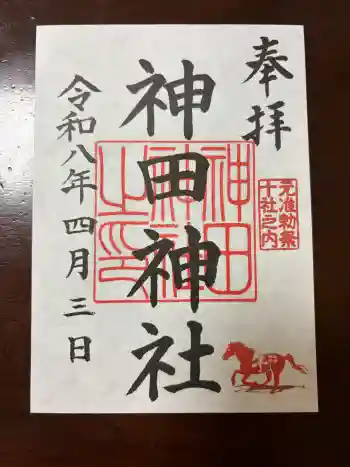 奉拝
元准勅祭
十社之内
神田神社
神田
神社
之印
令和八年四月三日